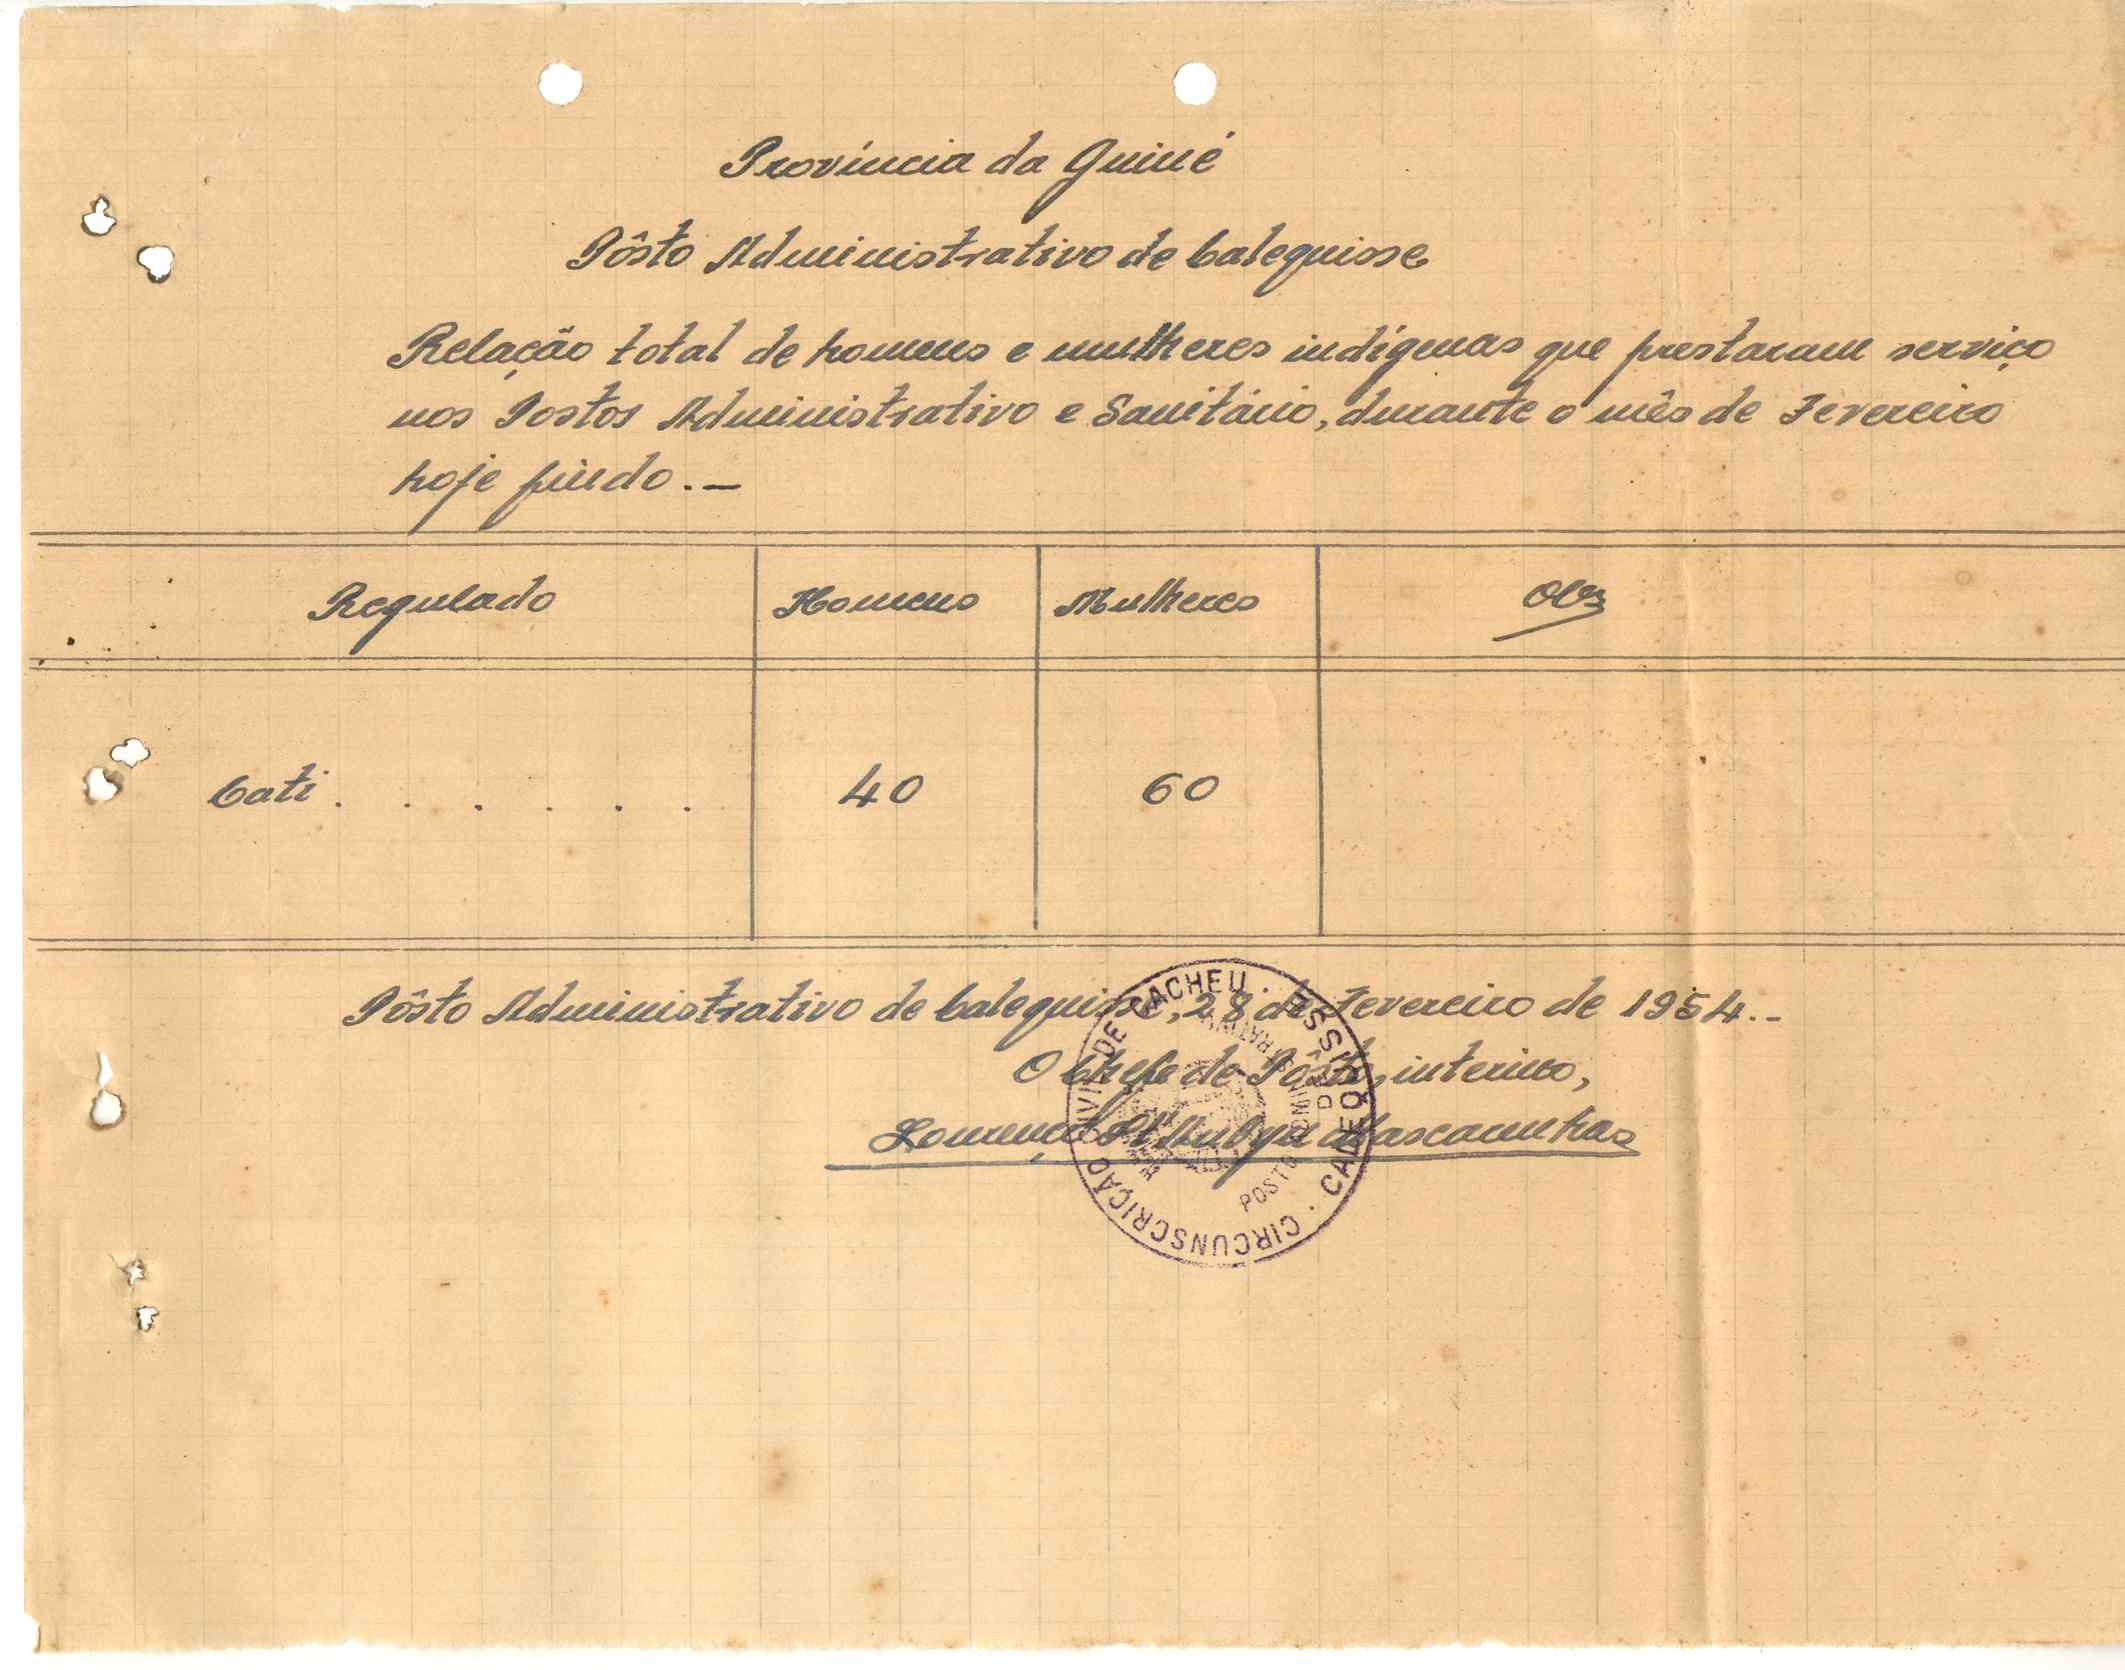 Província da Guiné
Pôsto Administrativo de Calequisse
Relação total de homens e mulheres indígenas que prestaram serviço
nos Postos Administrativo e Sanitário, durante o mês de Fevereiro
hoje findo.—
Regulado Homens Mulheres Obs
Cati . . . . . . 40 60
Pôsto Administrativo de Calequisse, 28 de Fevereiro de 1954.-
O Chefe de Pôsto, interino,
Lourenço Mascarenhas
CIRCUNSCRIÇÃO CIVIL DE CACHEU
POSTO ADMINISTRATIVO
DE